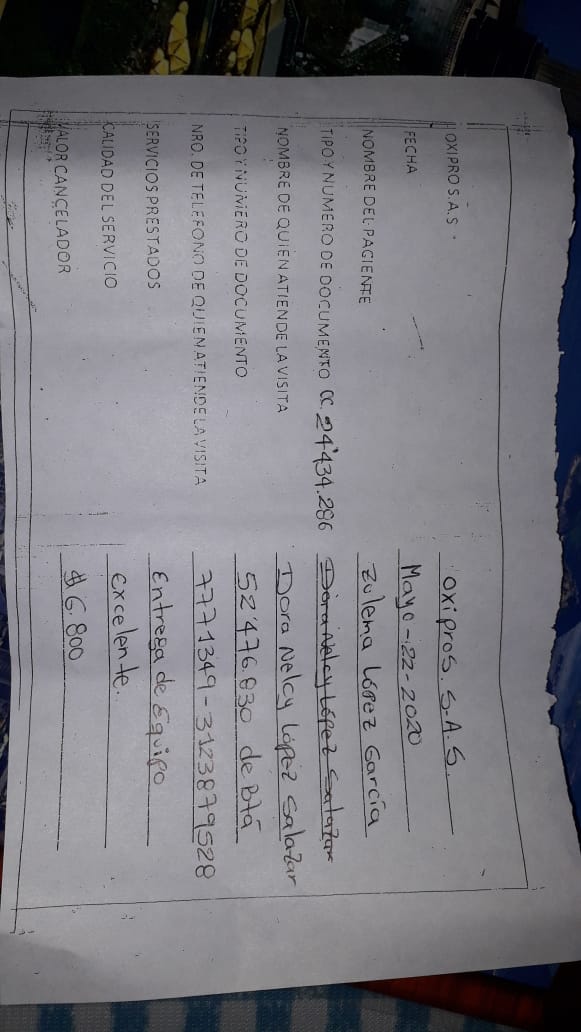 OXIPRO S.A.S. oxipros. S.A.S.
FECHA Mayo-22-2020
NOMBRE DEL PACIENTE Zulema López García
TIPO Y NUMERO DE DOCUMENTO CC 24'434.286 Dora Nelcy López Salazar
NOMBRE DE QUIEN ATIENDE LA VISITA Dora Nelcy López Salazar
TIPO Y NUMERO DE DOCUMENTO 52'476.830 de Btá
NRO. DE TELEFONO DE QUIEN ATIENDE LA VISITA 7771349-3123879528
SERVICIOS PRESTADOS Entrega de Equipo
CALIDAD DEL SERVICIO excelente.
VALOR CANCELADOR $6.800